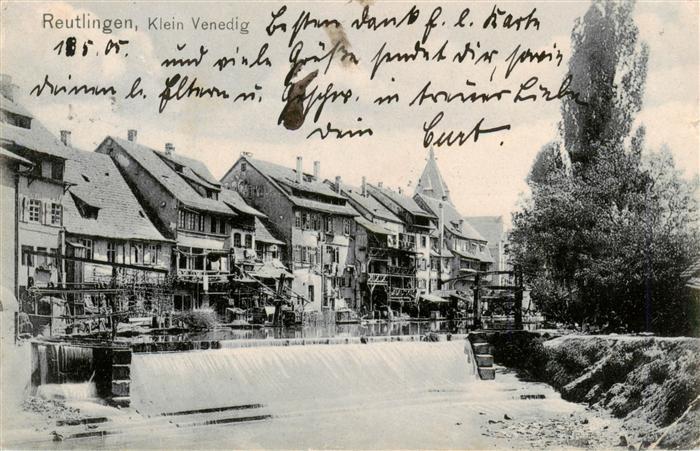 Reutlingen, Klein Venedig
Besten Dank f. l. Karte
1.5.05. und viele Grüße sendet Dir, sowie
deinen l. Eltern u. Geschw. in treuer Liebe
Dein Curt.